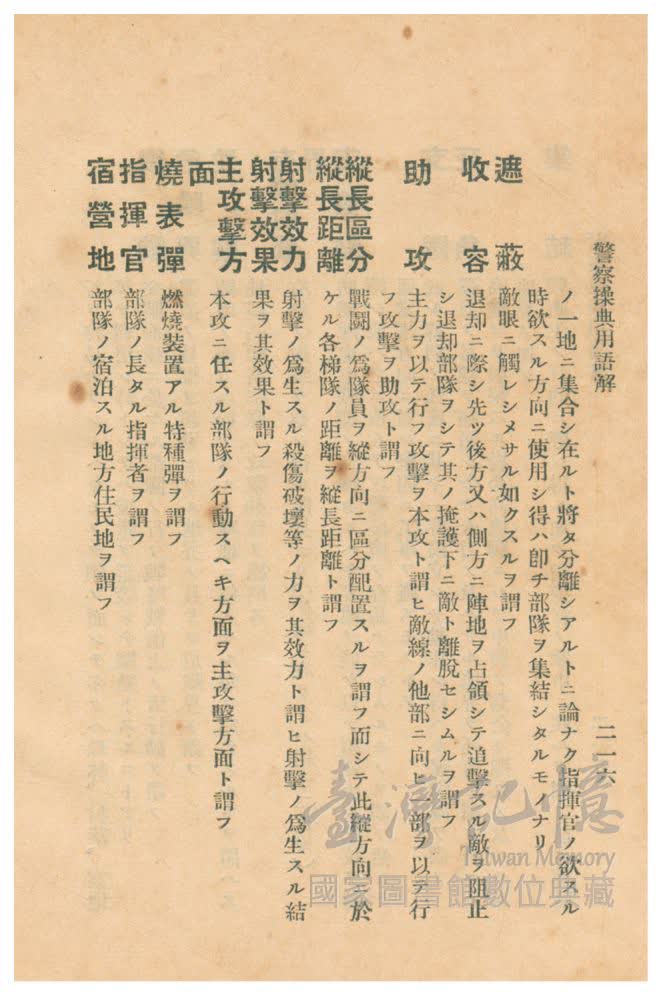 警察操典用語解
二一六
ノ一地ニ集合シ在ルト將タ分離シアルトニ論ナク指揮官ノ欲スル
時欲スル方向ニ使用シ得ハ卽チ部隊ヲ集結シタルモノナリ
遮蔽 敵眼ニ觸レシメサル如クスルヲ謂フ
收容 退却ニ際シ先ツ後方又ハ側方ニ陣地ヲ占領シテ追擊スル敵ヲ阻止
シ退却部隊ヲシテ其ノ掩護下ニ敵ト離脫セシムルヲ謂フ
助攻 主力ヲ以テ行フ攻擊ヲ本攻ト謂ヒ敵線ノ他部ニ向ヒ一部ヲ以テ行
フ攻擊ヲ助攻ト謂フ
縱長區分 戰鬪ノ爲隊員ヲ縱方向ニ區分配置スルヲ謂フ而シテ此縱方向ニ於
縱長距離 ケル各梯隊ノ距離ヲ縱長距離ト謂フ
射擊效力 射擊ノ爲生スル殺傷破壞等ノ力ヲ其效力ト謂ヒ射擊ノ爲生スル結
射擊效果 果ヲ其效果ト謂フ
主攻擊方 本攻ニ任スル部隊ノ行動スヘキ方面ヲ主攻擊方面ト謂フ
面
燒表彈 燃燒裝置アル特種彈ヲ謂フ
指揮官 部隊ノ長タル指揮者ヲ謂フ
宿營地 部隊ノ宿泊スル地方住民地ヲ謂フ
臺灣記憶
Taiwan Memory
國家圖書館數位典藏